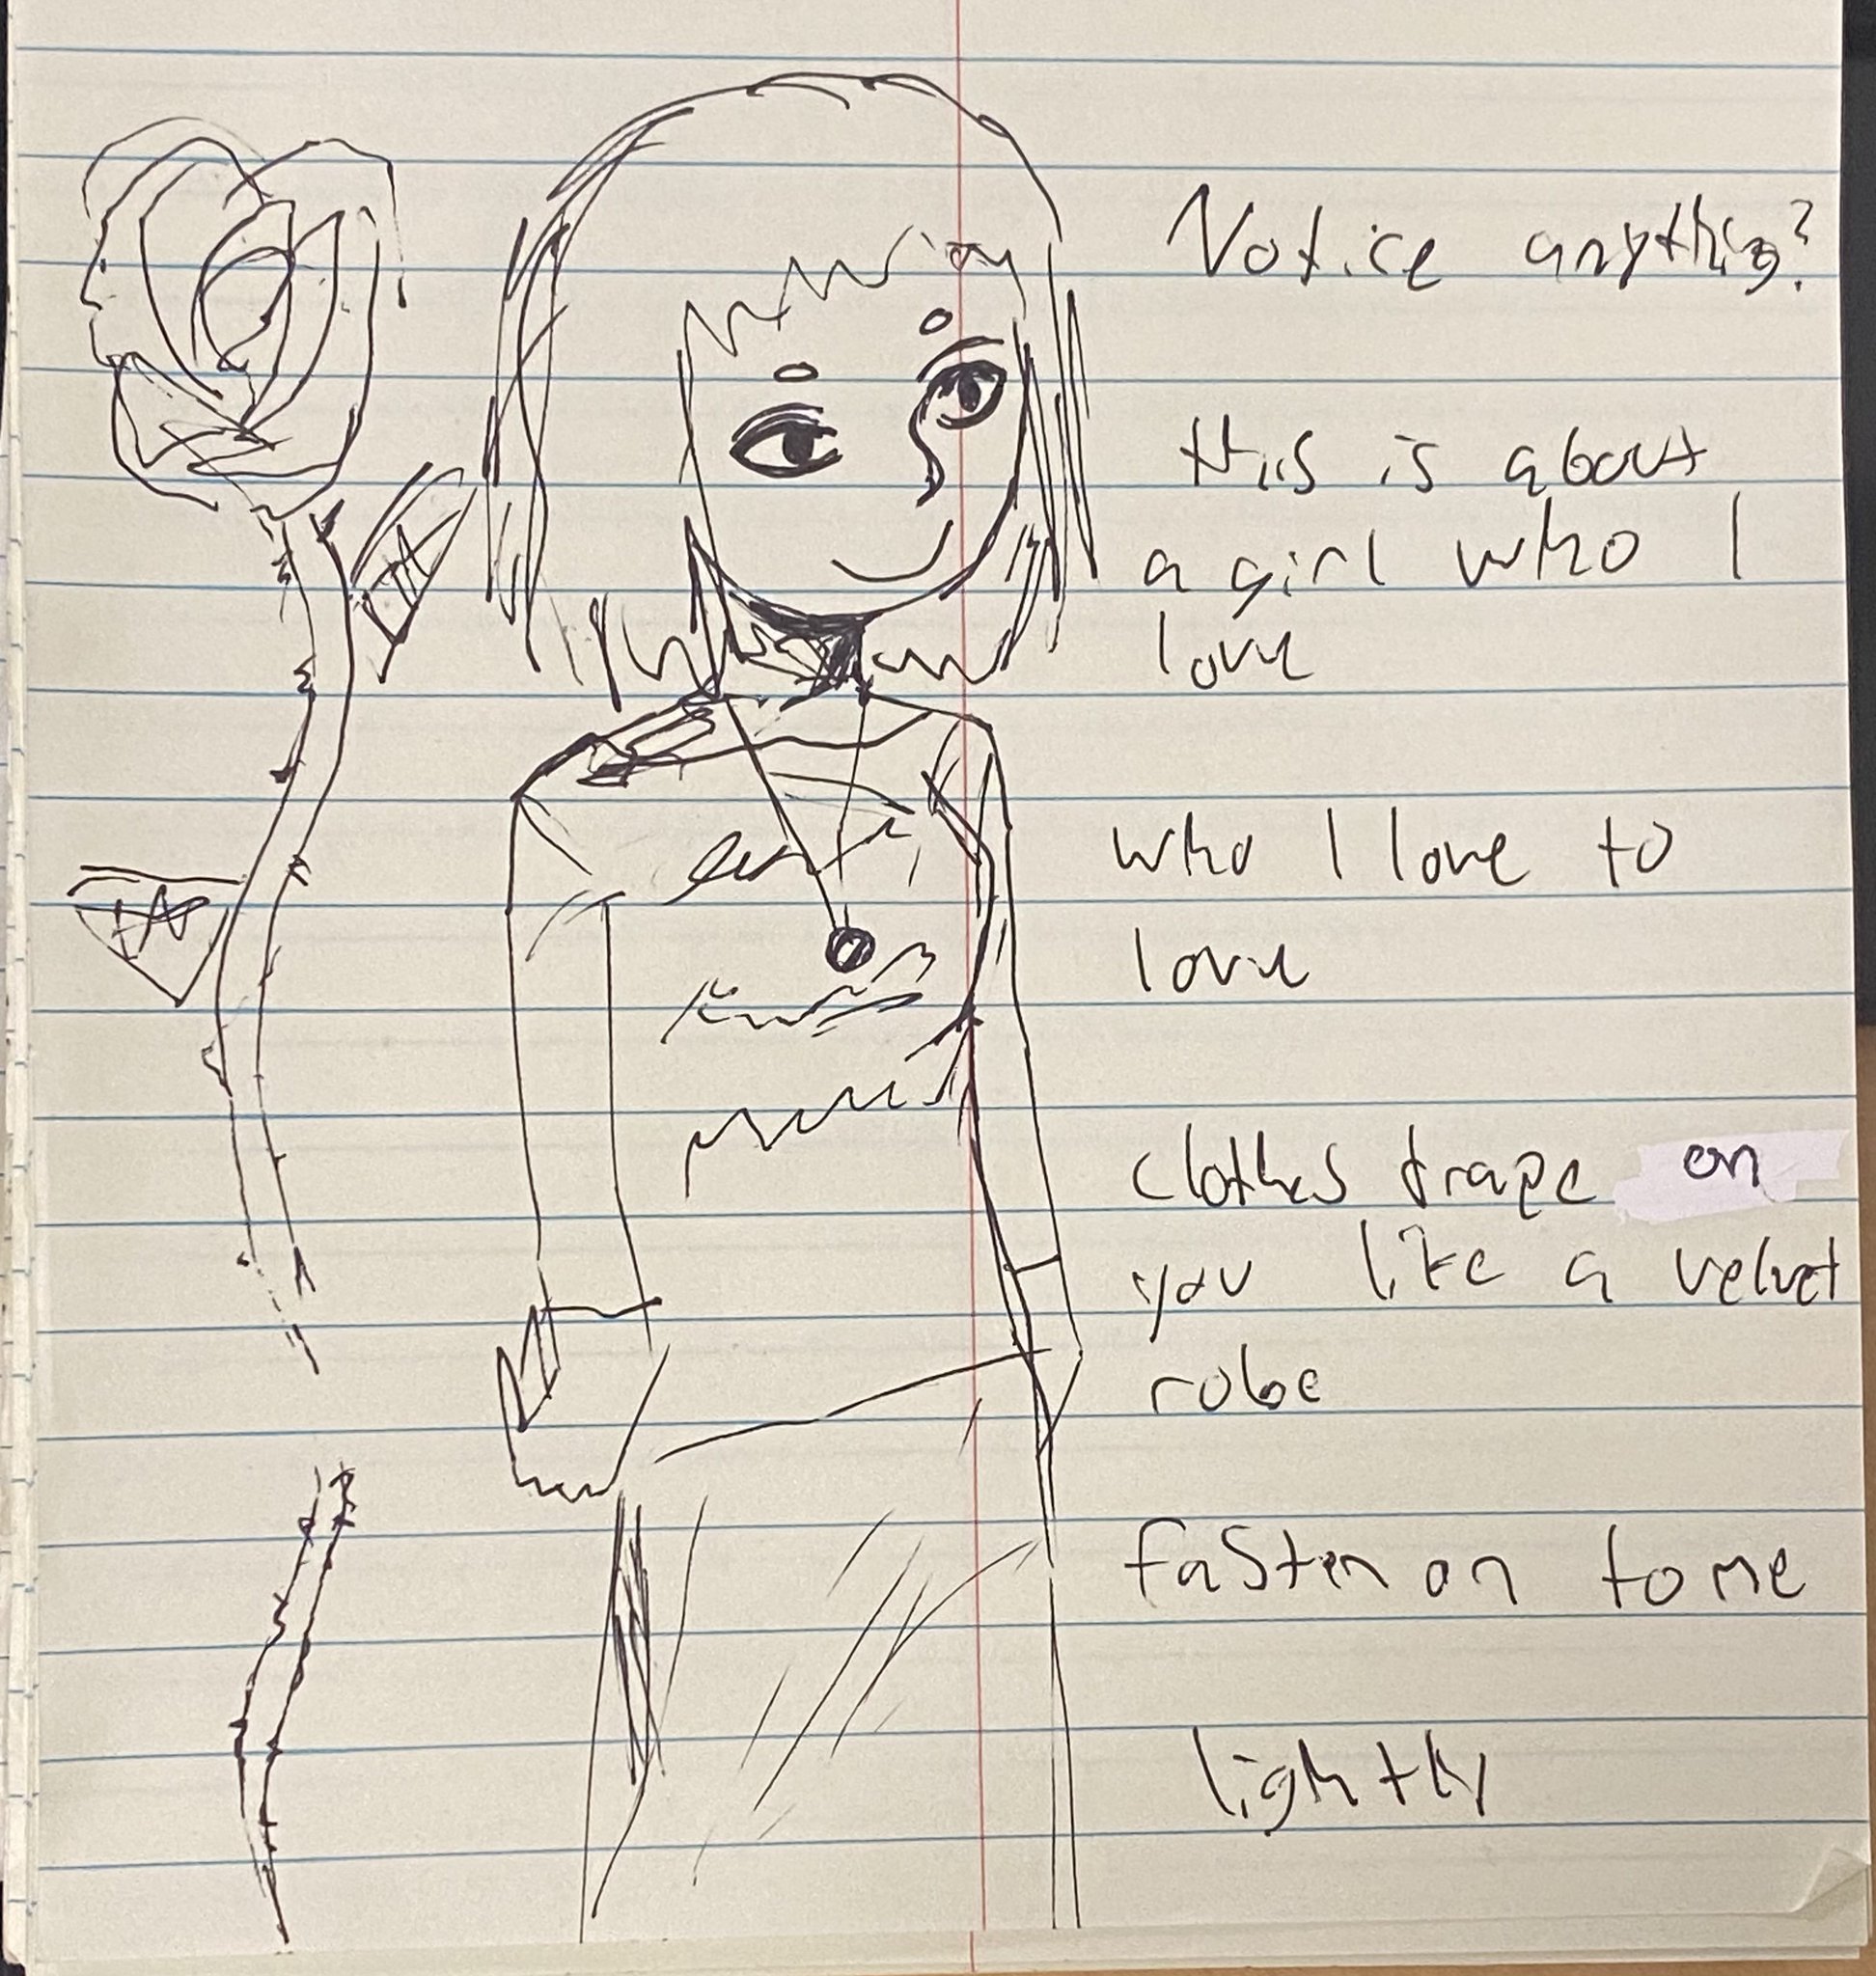 Notice anything?
this is about
a girl who I
love
who I love to
love
clothes drape on
you like a velvet
robe
fasten on to me
lightly